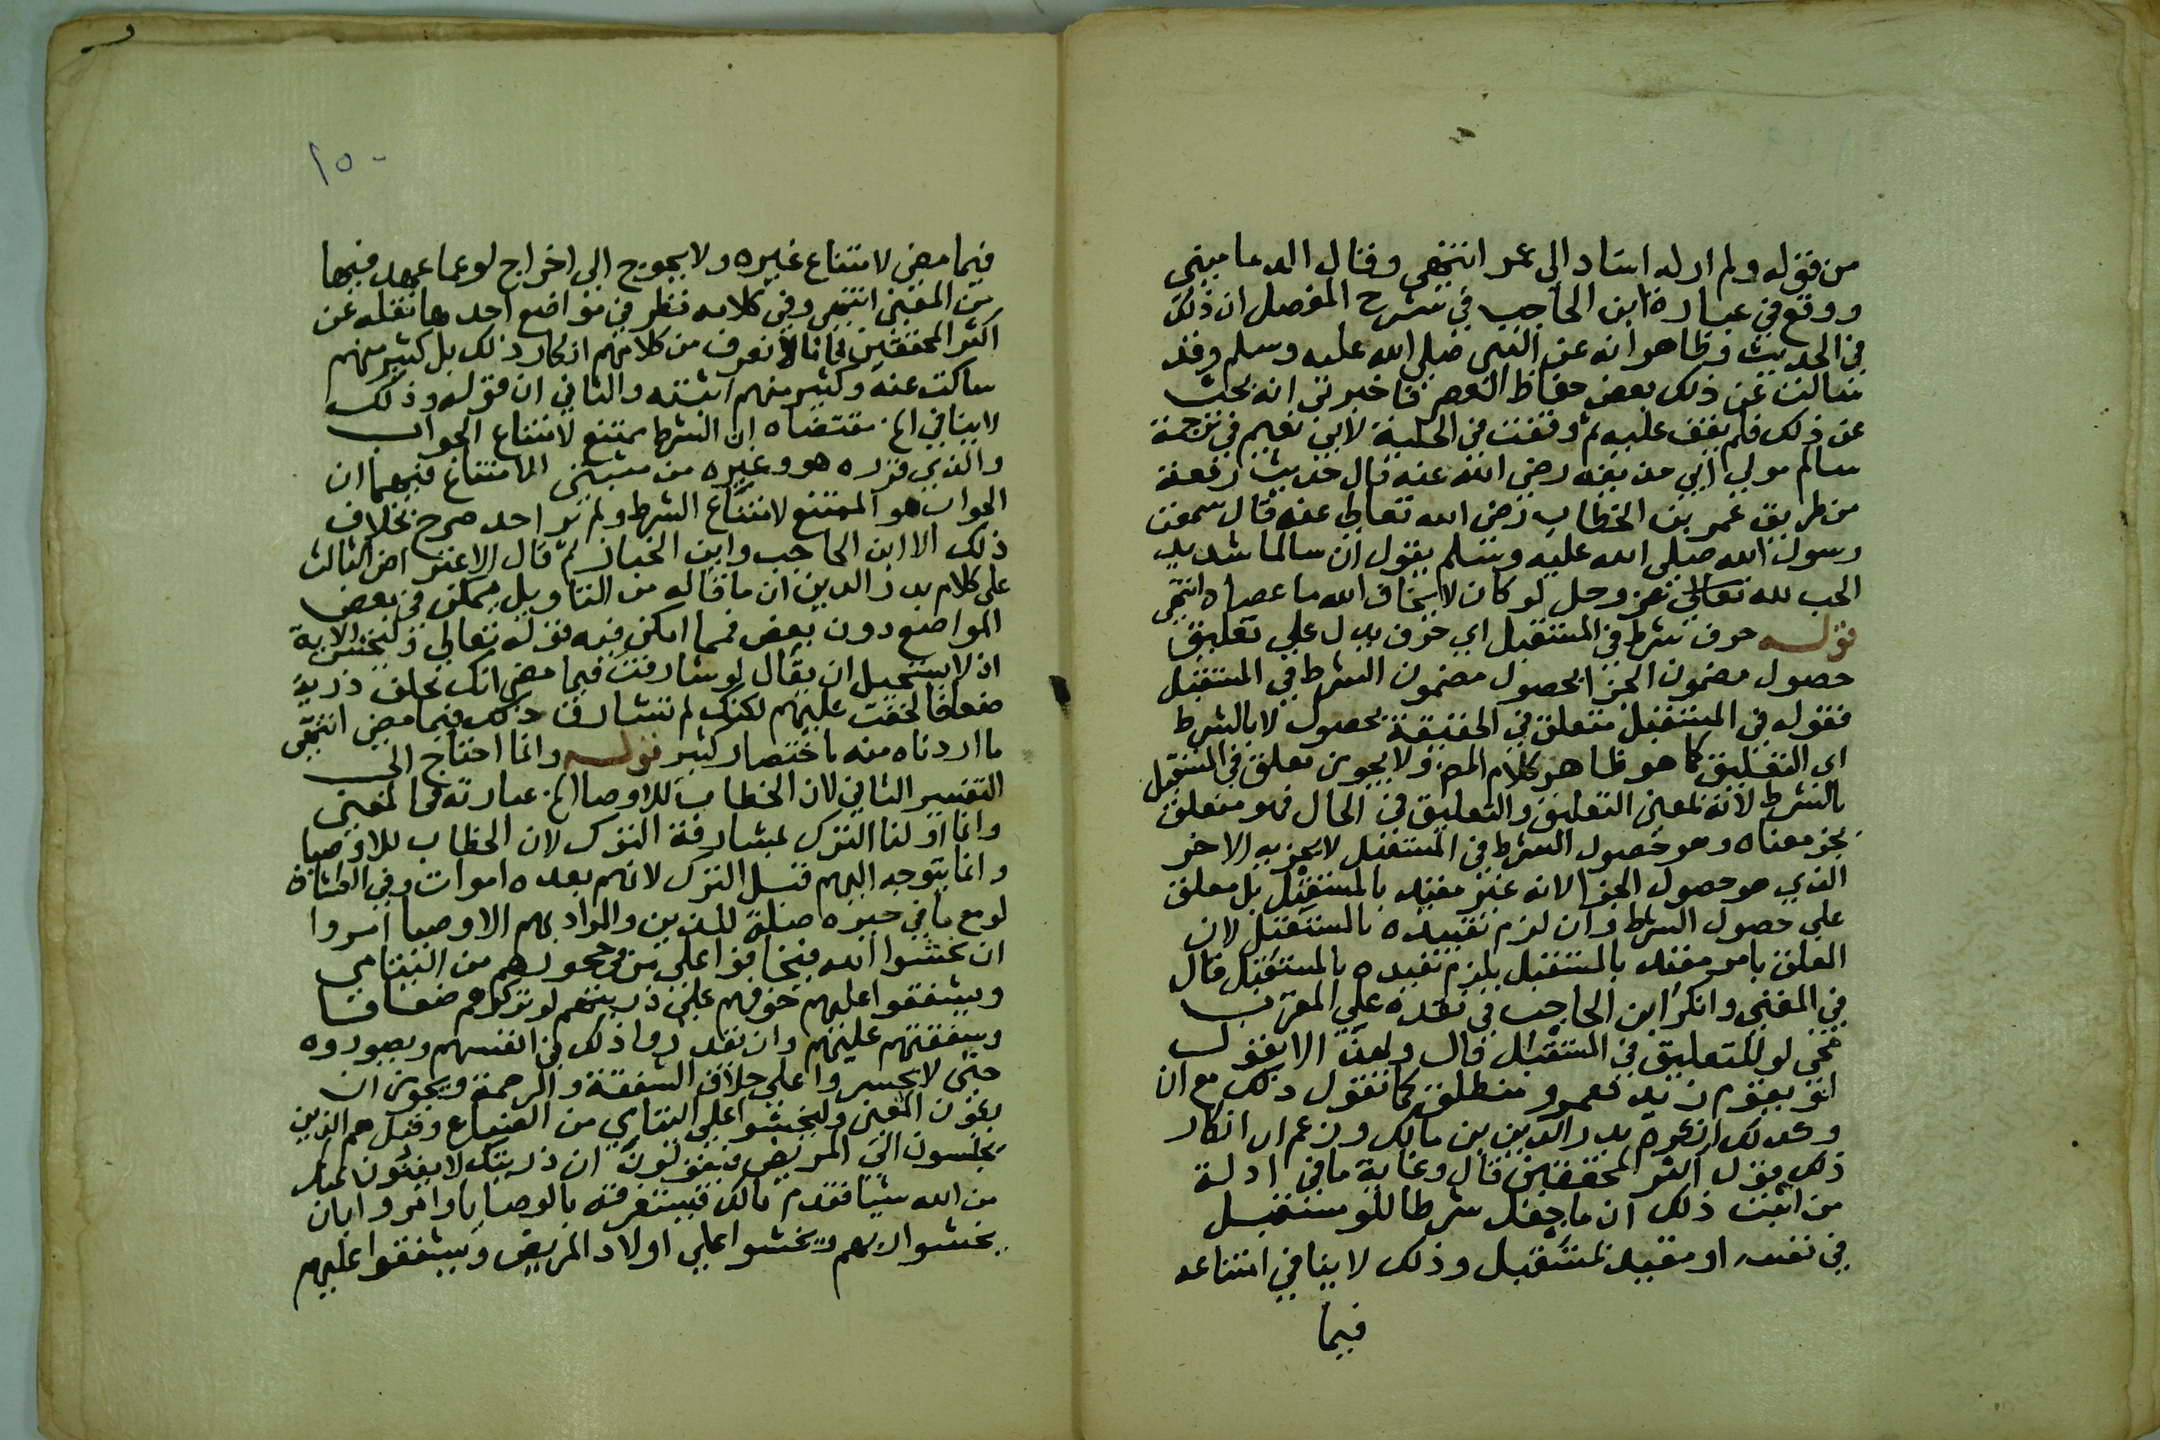 من قوله ولم ار له اسنادا الى عمر انتهى وقال الدماميني
ووقع في عبارة ابن الحاجب في شرح المفصل ان ذلك
في الحديث وظاهره انه عن النبي صلى الله عليه وسلم وقد
سالت عن ذلك بعض حفاظ العصر فاخبرني انه بحث
عن ذلك فلم يقف عليه ثم وقفت في الحلية لابي نعيم في ترجمة
سالم مولي ابي حذيفه رضي الله عنه قال حديث رفعه
من طريق عمر بن الخطاب رضي الله تعالى عنه قال سمعت
رسول الله صلى الله عليه وسلم يقول ان سالما شديد
الحب لله تعالى عز وجل لو كان لا يخاف الله ما عصاه انتهى
قوله حرف شرط في المستقبل اي حرف يدل علي تعليق
حصول مضمون الجزا بحصول مضمون الشرط في المستقبل
فقوله في المستقبل متعلق في الحقيقة بحصول لا بالشرط
اي التعليق كما هو ظاهر كلام المص ولا يجوز تعلق في المستقبل
بالشرط لانه بمعنى التعليق والتعليق في الحال فهو متعلق
بجز معناه وهو حصول الشرط في المستقبل لا بجزيه الاخر
الذي هو حصول الجزا لانه غير مقيد بالمستقبل بل معلق
علي حصول الشرط وان لزم تقييده بالمستقبل لان
المعلق بامر مقيد بالمستقبل يلزم تقيده بالمستقبل قال
في المغني وانكر ابن الحاجب في نقده علي المقرب
مجي لو للتعليق في المستقبل قال ولهذا لا يقول
لو يقوم زيد فعمرو منطلق كما تقول ذلك مع ان
وكذلك انكره بدر الدين بن مالك وزعم ان انكار
ذلك قول اكثر المحققين قال وغاية ما في ادلة
من اثبت ذلك ان ما جعل شرطا للو مستقبل
في نفسه او مقيد بمستقبل وذلك لا ينافي امتناعه
فيما
١٥٠
فيما مضى لامتناع غيره ولا يحوج الى اخراج لو عما عهد فيها
من المعنى انتهى وفي كلامه نظر في مواضع احدها نقله عن
اكثر المحققين فانا لا نعرف من كلامهم انكار ذلك بل كثير منهم
ساكت عنه وكثير منهم اثبته والثاني ان قوله وذلك
لا ينافي الخ مقتضاه ان الشرط يمتنع لامتناع الجواب
والذي قرره هو وغيره من مثبتي الامتناع فيهما ان
الجواب هو الممتنع لامتناع الشرط ولم نر احد صرح بخلاف
ذلك الا ابن الحاجب وابن الخباز ثم قال الاعتراض الثالث
على كلام بدر الدين ان ما قاله من التاويل ممكن في بعض
المواضع دون بعض فمما امكن فيه قوله تعالى وليخش الاية
اذ لا يستحيل ان يقال لو شارفت فيما مضى انك تخلف ذرية
ضعافا لخفت عليهم لكنك لم تشارف ذلك فيما مضى انتهى
ما اردناه منه باختصار كثير قوله وانما احتاج الى
التفسير الثاني لان الخطاب للاوصيا الخ عبارته في المغني
وانما اولنا الترك بمشارفة الترك لان الخطاب للاوصيا
وانما يتوجه اليهم قبل الترك لانهم بعده اموات وفي الكشاف
لو مع ما في حيزه صلة للذين والمراد بهم الاوصيا امروا
ان يخشوا الله فيخافوا على من في حجورهم من اليتامى
ويشفقوا عليهم خوفهم على ذريتهم لو تركوهم ضعافا
وشفقتهم عليهم وان يقدروا ذلك في انفسهم ويصوروه
حتى لا يجسروا على خلاف الشفقة والرحمة ويجوز ان
يكون المعنى وليخشوا على اليتامى من الضياع وقيل هم الذين
يجلسون الى المريض فيقولون ان ذريتك لا يغنون عنك
من الله شيا فقدم مالك فيستغرقه بالوصايا وامر و ابان
يخشوا ربهم ويخشوا على اولاد المريض ويشفقوا عليهم